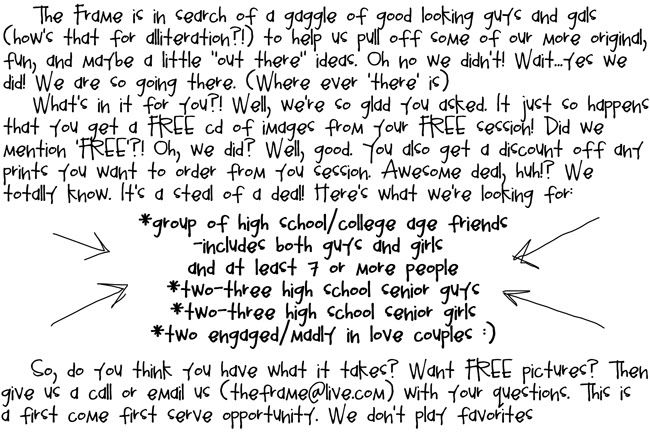 The Frame is in search of a gaggle of good looking guys and gals
(how's that for alliteration?!) to help us pull off some of our more original,
fun, and maybe a little "out there" ideas. Oh no we didn't! Wait...yes we
did! We are so going there. (Where ever 'there' is)
What's in it for you?! Well, we're so glad you asked. It just so happens
that you get a FREE cd of images from your FREE session! Did we
mention 'FREE'?! Oh, we did? Well, good. You also get a discount off any
prints you want to order from you session. Awesome deal, huh!? We
totally know. It's a steal of a deal! Here's what we're looking for:
*group of high school/college age friends
-includes both guys and girls
and at least 7 or more people
*two-three high school senior guys
*two-three high school senior girls
*two engaged/madly in love couples :)
So, do you think you have what it takes? Want FREE pictures? Then
give us a call or email us (theframe@live.com) with your questions. This is
a first come first serve opportunity. We don't play favorites